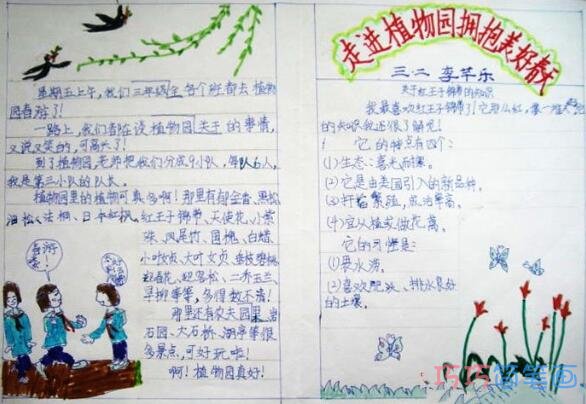 走进植物园拥抱美好春天
三.二 李芊乐
星期五上午，我们三年级全各个班都去植物
园春游了！
一路上，我们都在谈植物园关于的事情，
又说又笑的，可高兴了！
到了植物园，老师把我们分成9小队，每队6人，
我是第三小队的队长。
植物园里的植物可真多啊！那里有郁金香、黑松、
油松、法桐、日本红枫、红王子锦带、天使花、小紫
珠、凤尾竹、国槐、白蜡、
小叶女贞、大叶女贞、垂枝碧桃、
迎春花、迎客松、二乔玉兰、
早柳等等，多得数不清！
那里还有农夫园果、岩
石园、大石桥、湖亭等很
多景点，可好玩啦！
啊！植物园真好！
春游
喽！
关于红王子锦带的知识
我最喜欢红王子锦带了！它那么红，像一堆火
的知识我还很了解呢！
它的特点有四个：
(1)生态：喜光耐寒。
(2)它是由美国引入的新品种。
(3)扦插繁殖，成活率高。
(4)宜丛植或做花篱。
它的习性是：
(1)畏水涝。
(2)喜欢肥沃、排水良好
的土壤。
巧巧简笔画